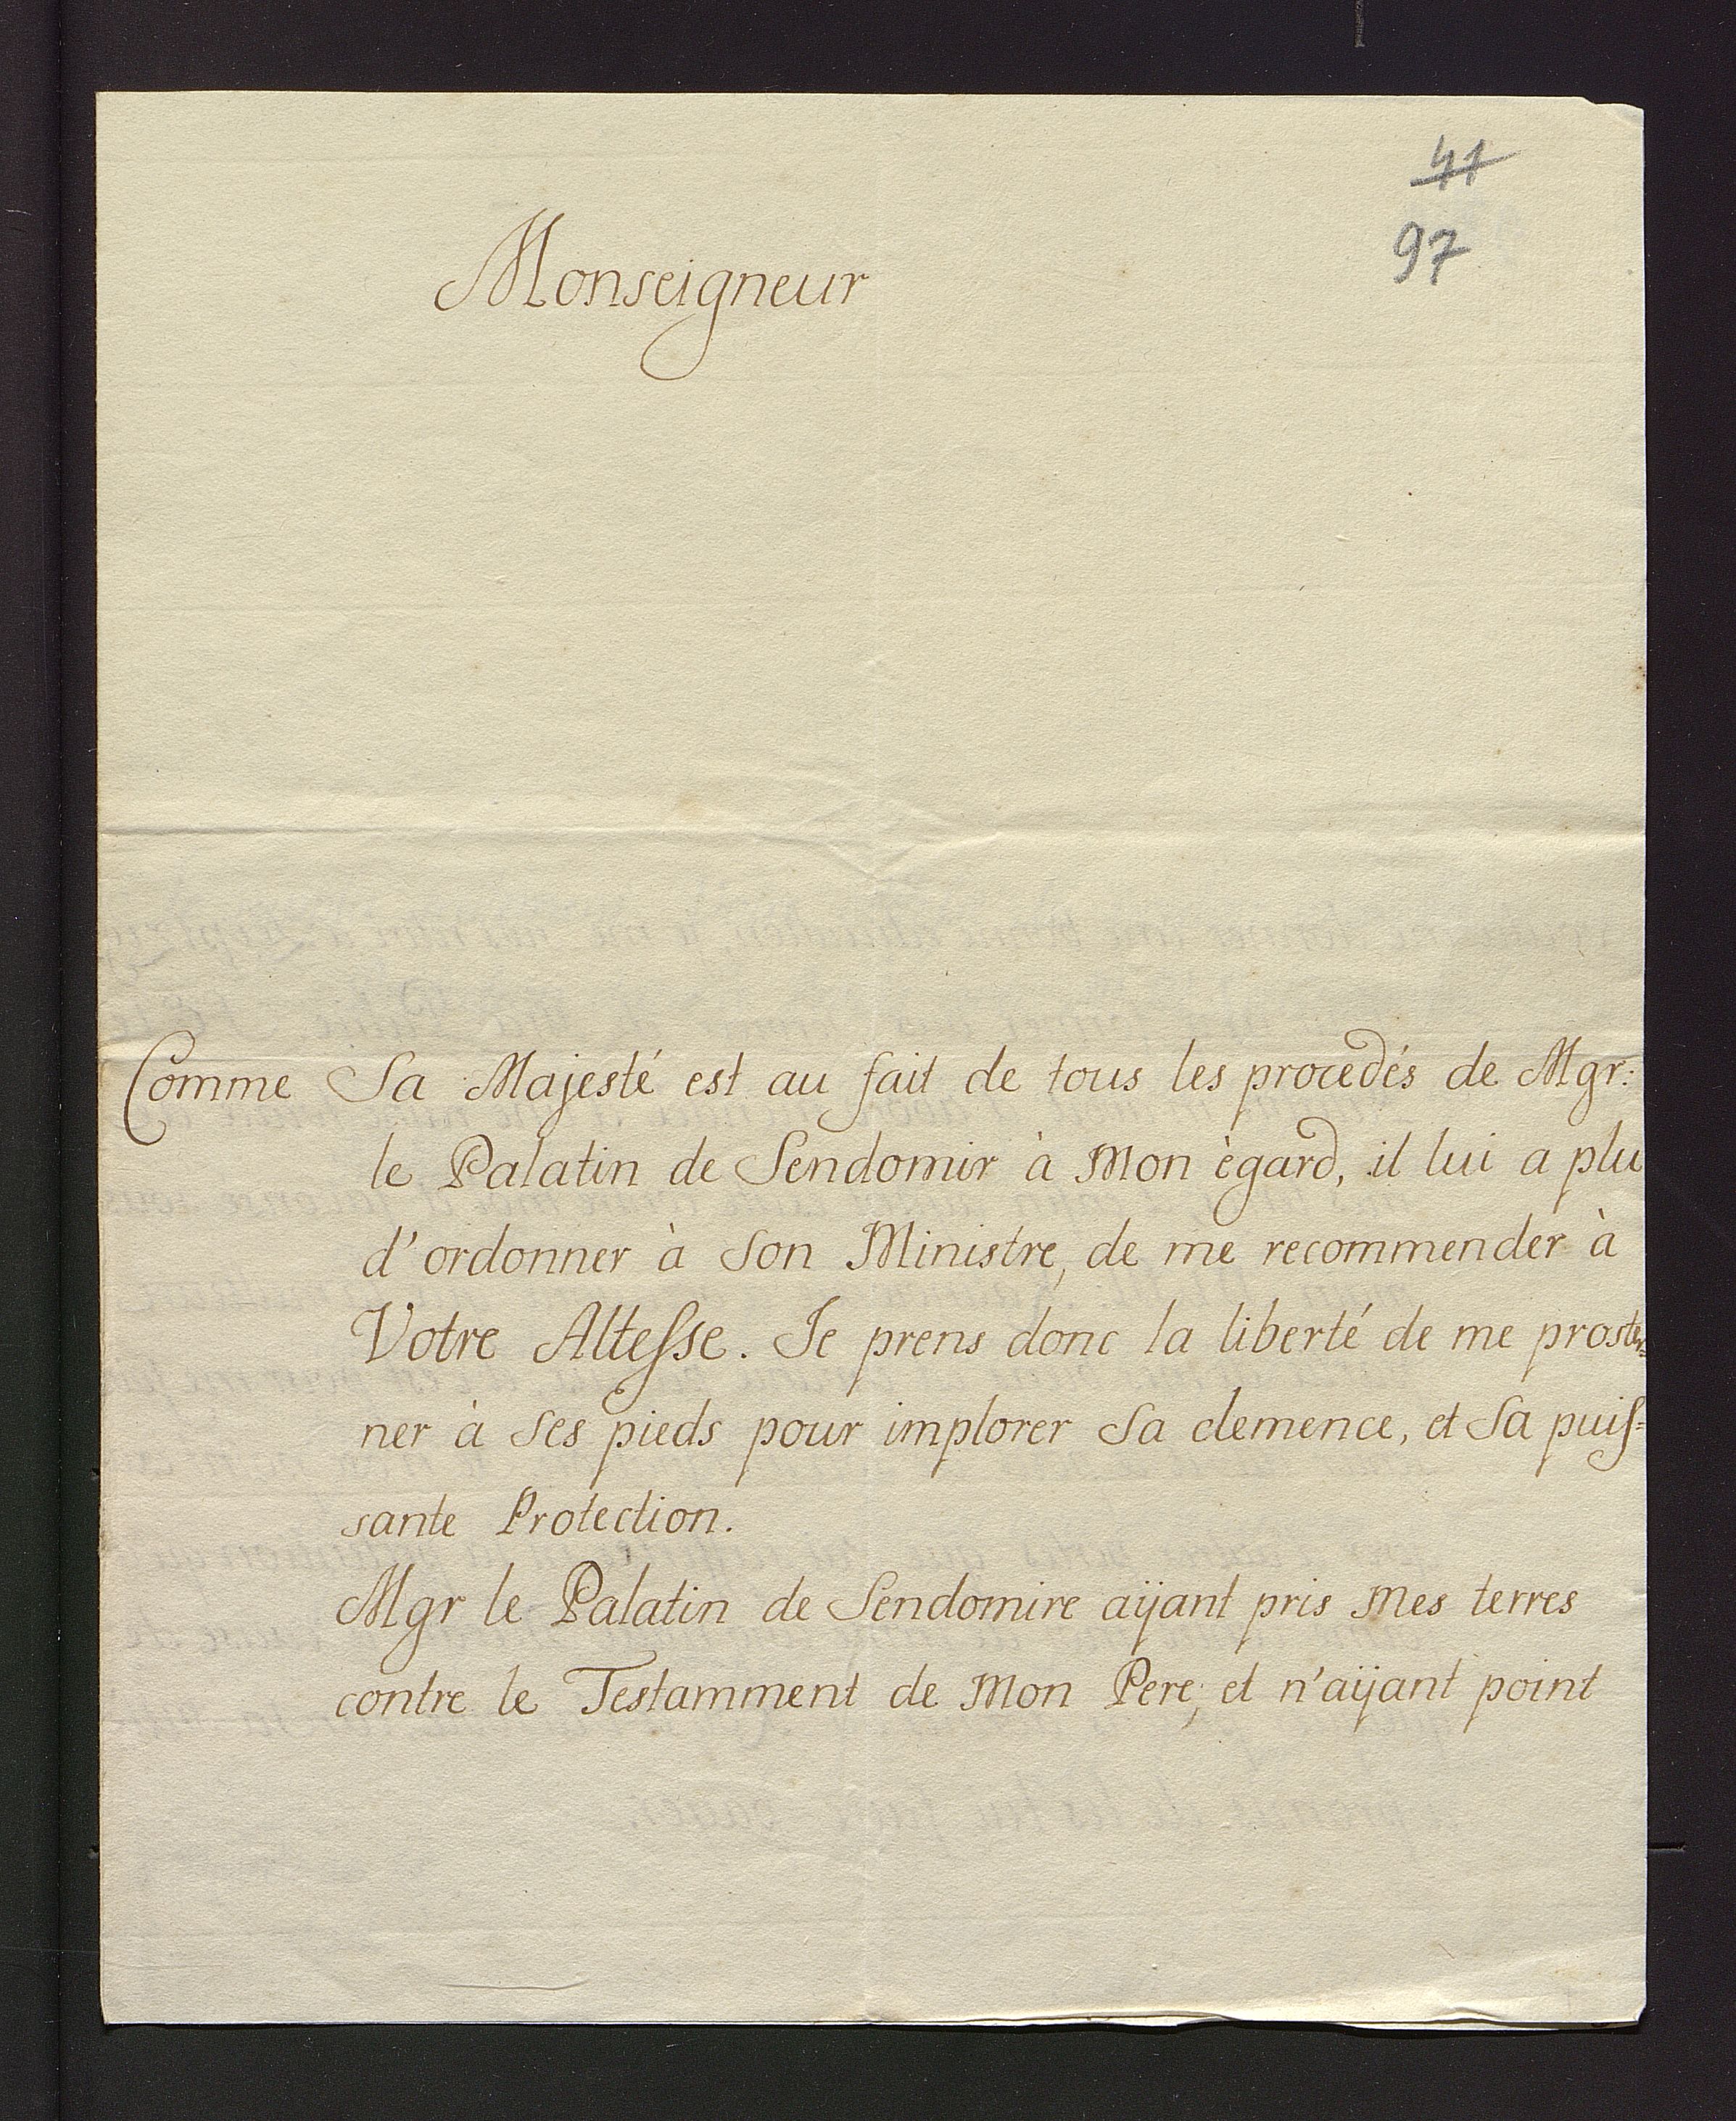 41
97
Monseigneur
Comme Sa Majesté est au fait de tous les procedés de Mgr:
le Palatin de Sendomir à Mon ègard, il lui a plu
d'ordonner à Son Ministre, de me recommender à
Votre Altesse. Je prens donc la liberté de me proster=
ner à Ses pieds pour implorer Sa clemence, et Sa puis=
sante Protection.
Mgr le Palatin de Sendomire aÿant pris Mes terres
contre le Testamment de Mon Pere, et n'aÿant point